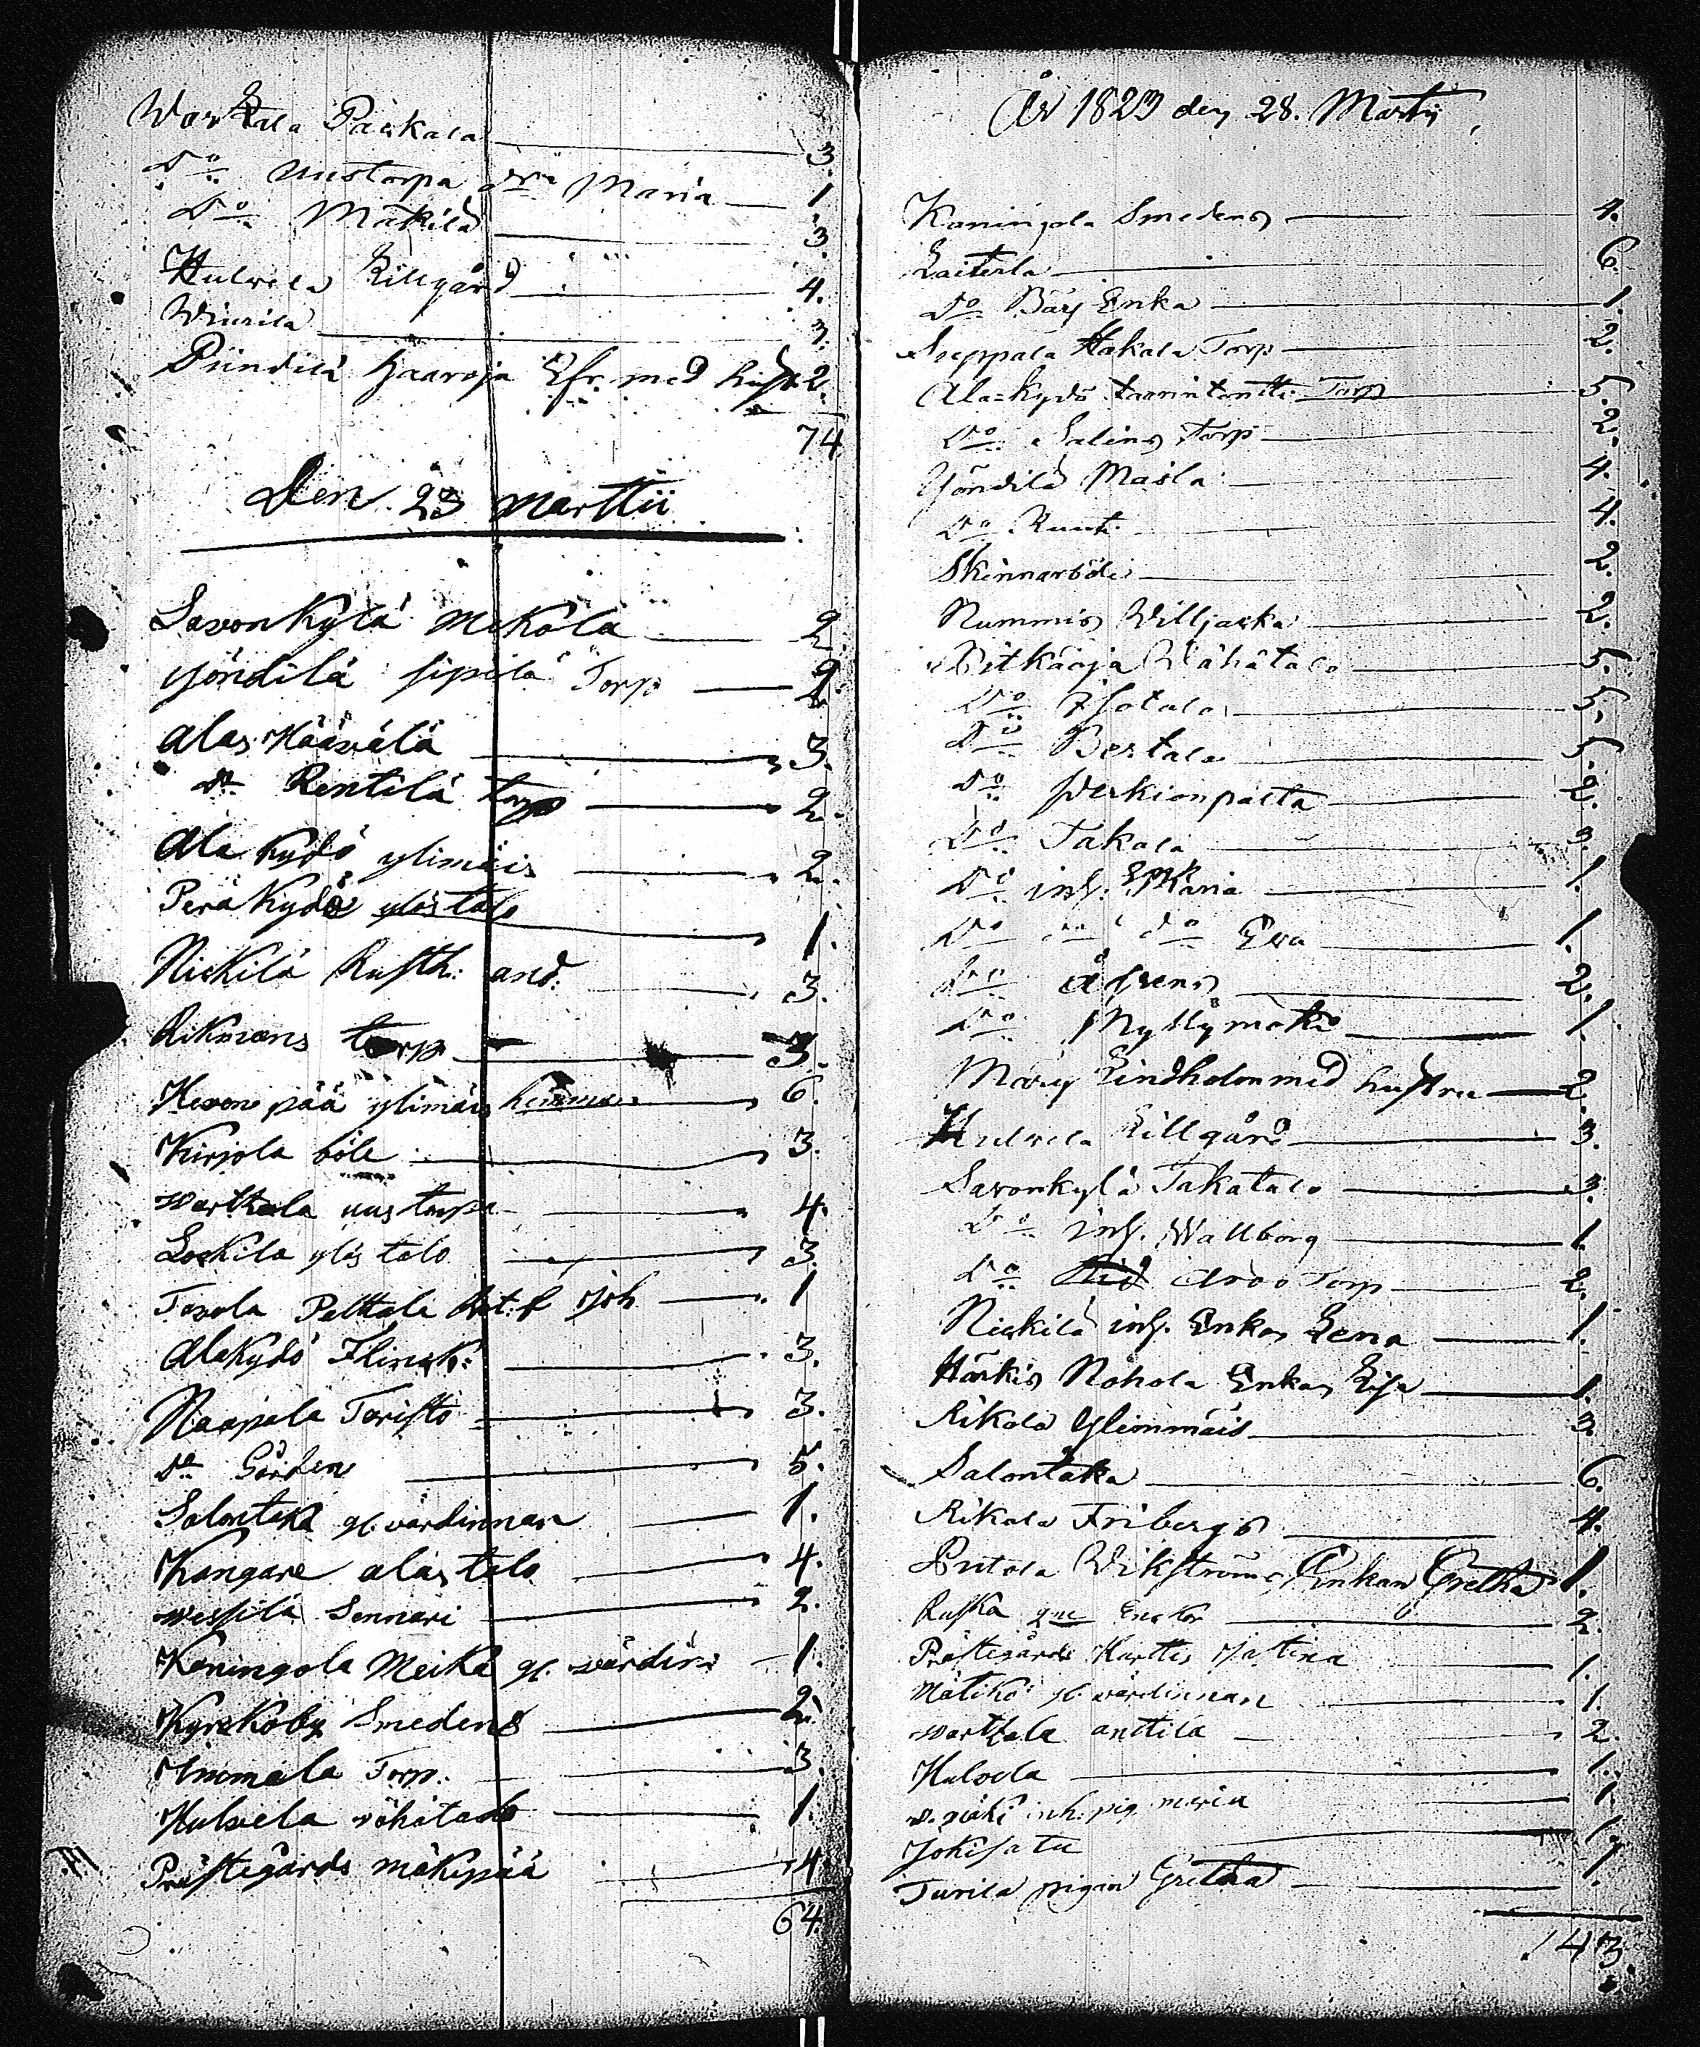 Wartsala Päekala 3
Do Uustorpa Maria 1
Do Mäkilä 3
Hulvela Lillgård 4.
Wiurila 3.
Piindilä haaroja Efr. med hust 2.
74
Den 23 Marttii
Savonkylä Mikola 2
Yöndilä sipilä Torp 2.
Alas Hääwälä 3.
Do Rentilä torp 2.
Ala kydö ylimäis 2.
Perä Kydö ylistalo 1.
Nickilä Rusth: and. 3.
Rikmans torp 3.
Kevonpää ylimäis hemman 6.
Kirjola böle 3.
warthala uus torpa 4.
Lockila ylis talo 3.
Tovola Pelttola Joh 1
Alakydö Flinck: 3.
Naapala Toristo 3.
Do Gården 5.
Salontaka gl. värdinnan 1.
Kangare alas talo 4.
wessilä Sennari 2.
Koningola Meikä gl. värdin 1.
Kyrckoby Smedens 2.
Himmala Torp. 3.
Hulvela vähätalo 1.
Prästegårds mäkipää 4.
64.
År 1823 den 28. Martii
Kaningola Smedens 4.
Laiterla 6.
Do Bärj Enka 1.
Seppälä Hakala Torp 2.
Ala=kydö Torp 5.
Do Salins Torp 2.
Yöndilä Maila 4.
Do Kunt. 4.
Skinnarböle 2.
Nummis Willjacka 2.
Pitkäoja Wähätalo 5.
Do Isotalo 5.
Do Bertala 5.
Do Perkionpalta 2.
Do Takala 3.
Do inh. Enk Karia 1.
Do do do Eva 1.
Do Ågrens 2.
Do Myllymäki 1.
Märij Lindholm med hustru 2.
Hulvela Lillgård 3.
Savonkylä Takatalo 3.
Do inh. Wallborg 1.
Do Aroo Torp 2.
Nickilä inh. Enkas Lena 1.
Härkis Nohola Enkan Lisa 1.
Rikola Ylimmäis 3.
Salontaka 6.
Rikala Fribergs 4.
Antola Wikströms Enkan Gretha 1.
Ruska Enckor 2.
Prästegårds Kartts Stina 1.
Mätikö gl. värdinnan 1.
warthala anttila 2.
Hulvela 1.
inh. pig maria 1.
Jokisatu 1.
Turila pigan Gretha 1.
143.